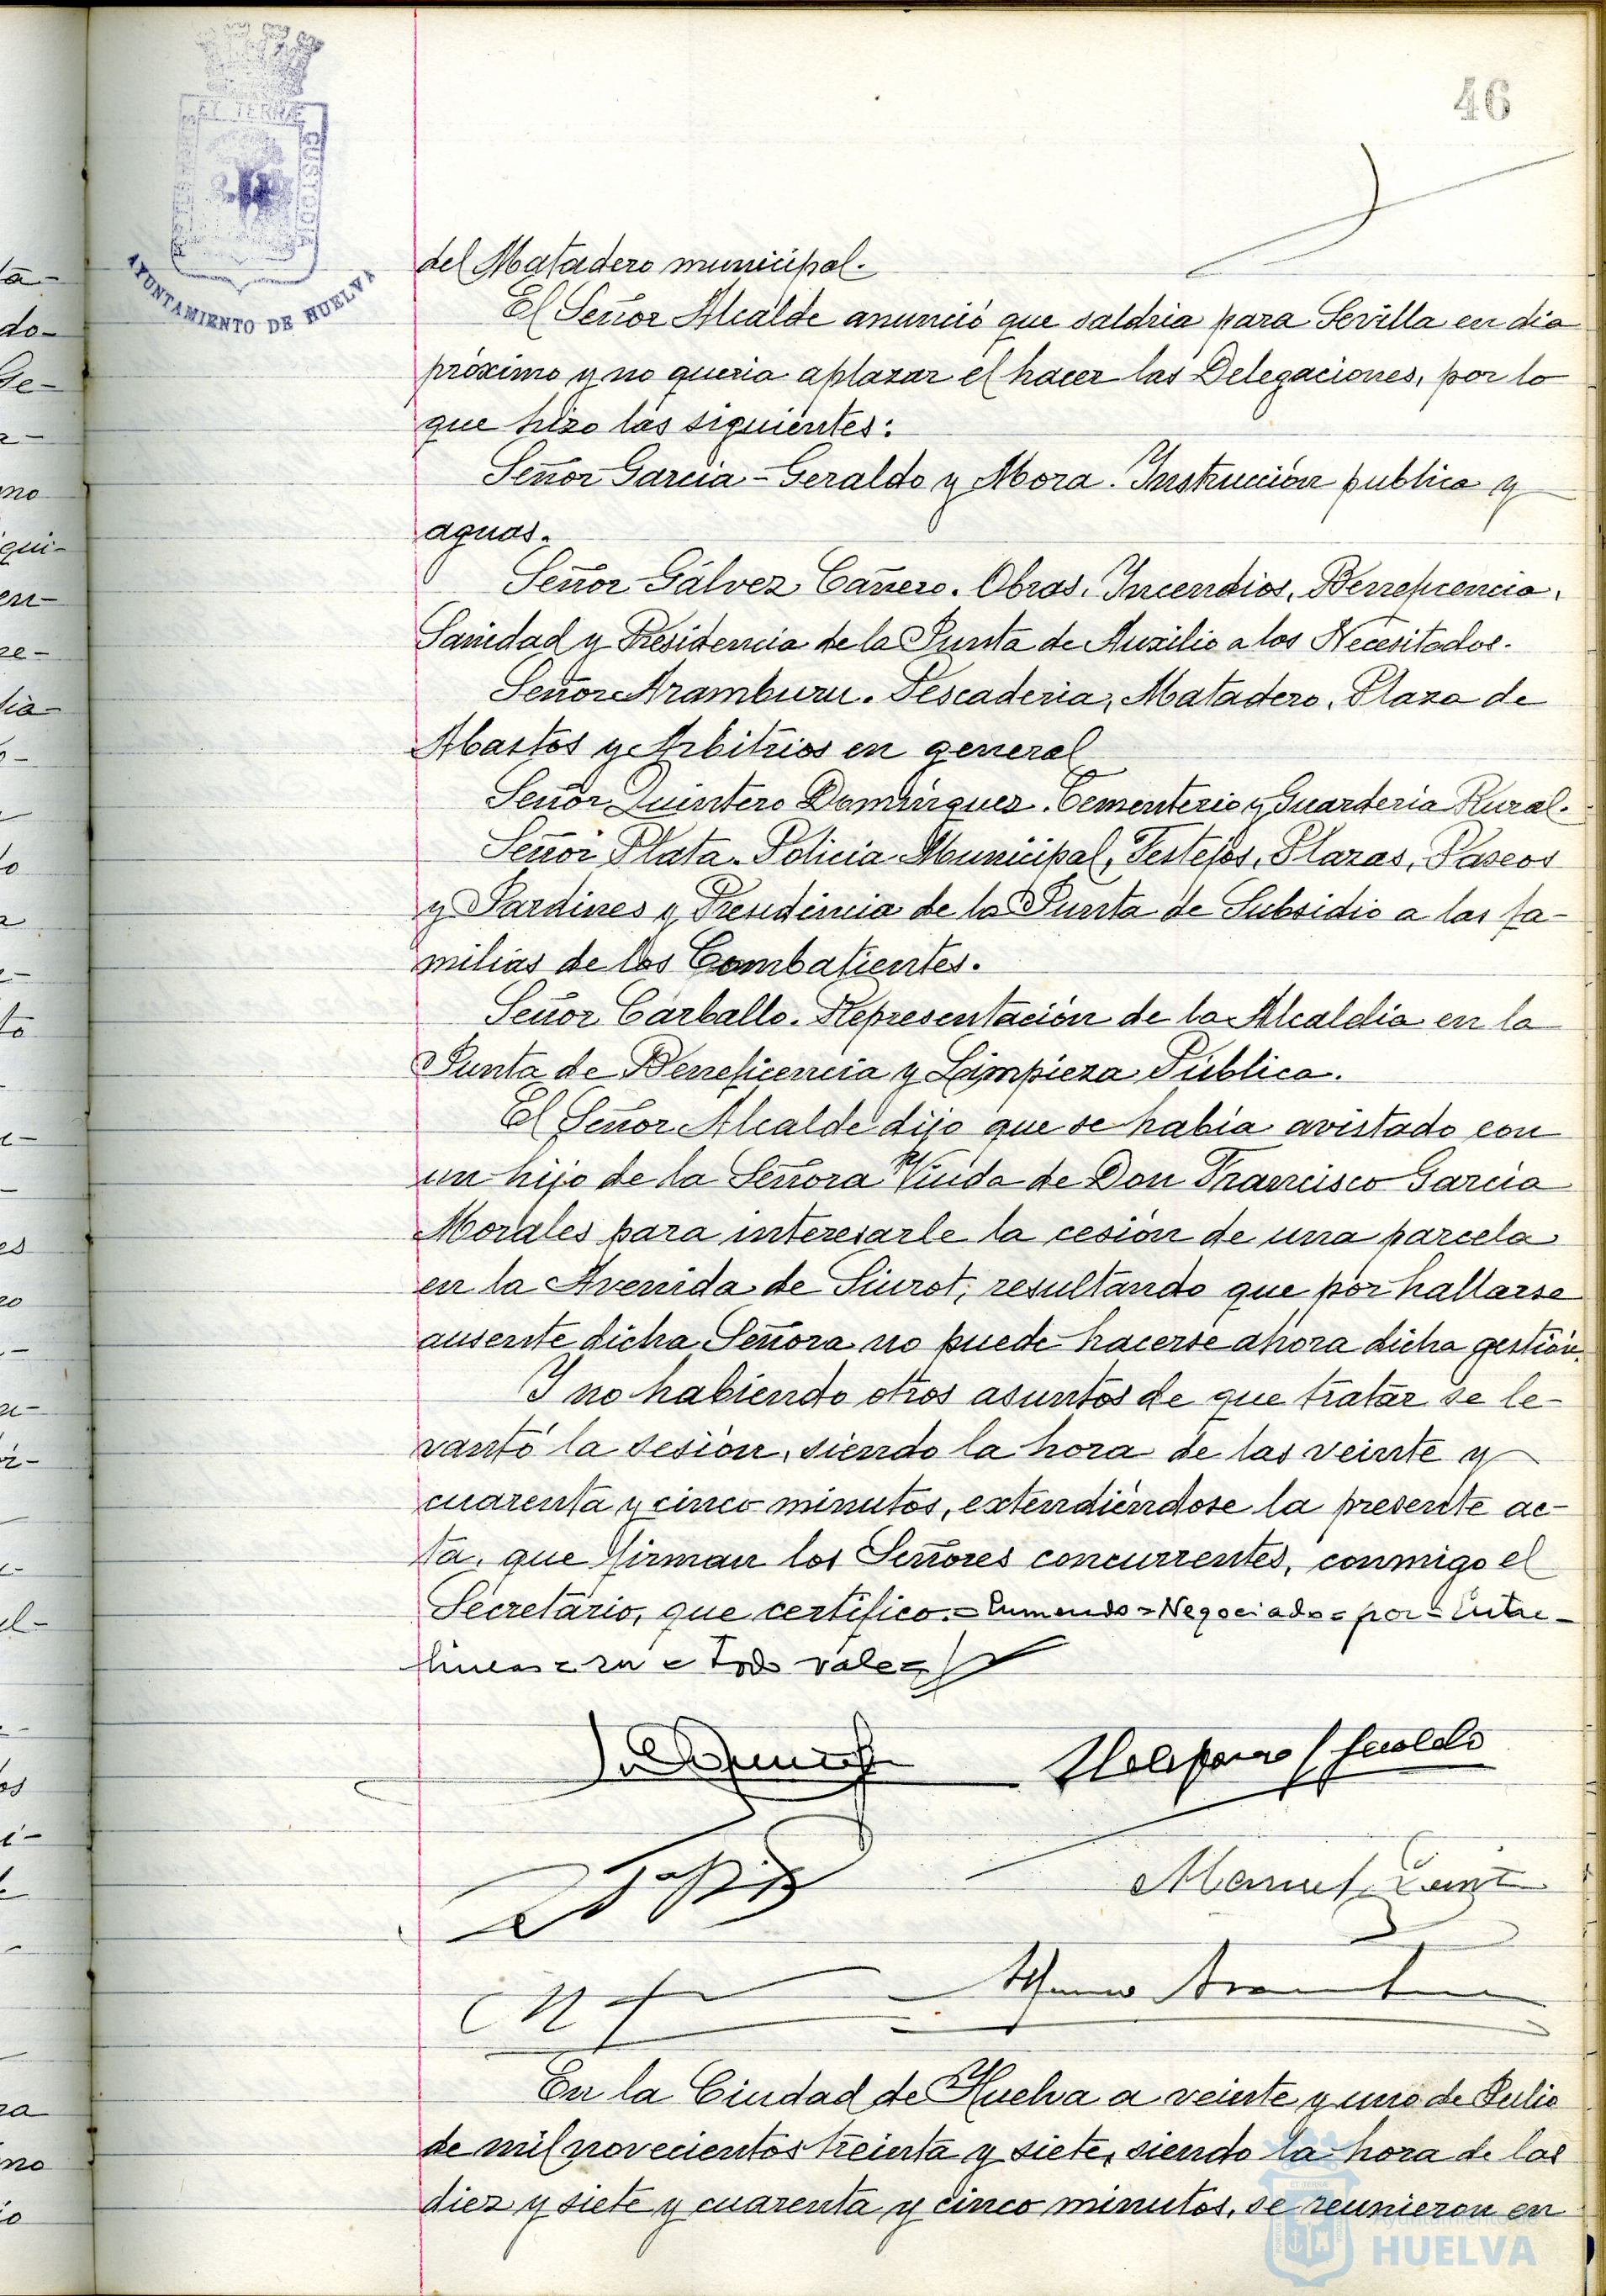 46
ET TERRÆ
CUSTODIA
AYUNTAMIENTO DE HUELVA
del Matadero municipal.
El Señor Alcalde anunció que saldria para Sevilla en dia
próximo y no queria aplazar el hacer las Delegaciones, por lo
que hizo las siguientes:
Señor Garcia-Geraldo y Mora. Instrucción publica y
aguas.
Señor Gálvez Cañero. Obras, Incendios, Beneficencia,
Sanidad y Presidencia de la Junta de Auxilio a los Necesitados.
Señor Aramburu. Pescaderia, Matadero, Plaza de
Abastos y Arbitrios en general
Señor Quintero Dominguez. Cementerio y Guarderia Rural.
Señor Plata. Policia Municipal, Festejos, Plazas, Paseos
y Jardines y Presidencia de la Junta de Subsidio a las fa-
milias de los Combatientes.
Señor Carballo. Representación de la Alcaldia en la
Junta de Beneficencia y Limpieza Pública.
El Señor Alcalde dijo que se habia avistado con
un hijo de la Señora Viuda de Don Francisco Garcia
Morales para interesarle la cesión de una parcela
en la Avenida de Siurot, resultando que por hallarse
ausente dicha Señora no puede hacerse ahora dicha gestión.
Y no habiendo otros asuntos de que tratar se le-
vantó la sesión, siendo la hora de las veinte y
cuarenta y cinco minutos, extendiéndose la presente ac-
ta, que firman los Señores concurrentes, conmigo el
Secretario, que certifico.=Enmendo=Negociado=por=Entre-
lineas= =Todo vale=
Manuel
Aramburu
En la Ciudad de Huelva a veinte y uno de Julio
de mil novecientos treinta y siete, siendo la hora de las
diez y siete y cuarenta y cinco minutos, se reunieron en
Ayuntamiento de
HUELVA